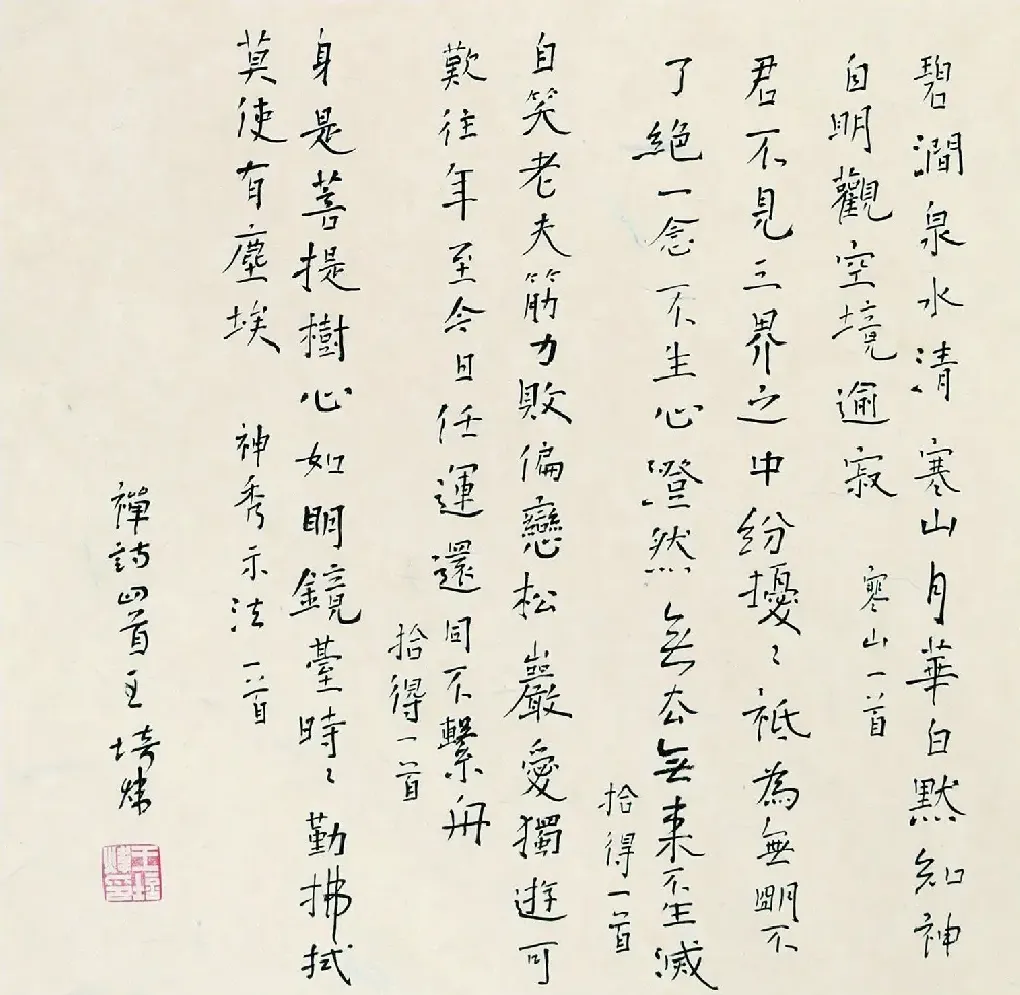 碧澗泉水清寒山月華白默知神
自明觀空境逾寂
寒山一首
君不見三界之中紛擾〻祗為無明不
了絕一念不生心澄然無去無來不生滅
拾得一首
自笑老夫筋力敗偏戀松巖愛獨遊可
歎往年至今日任運還同不繫舟
拾得一首
身是菩提樹心如明鏡臺時〻勤拂拭
莫使有塵埃
神秀示法一首
禪詩四首王埼煒